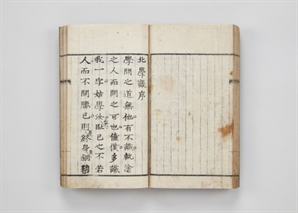 北學議序
學問之道無他有不識執塗
之人而問之可也僮僕多識
我一字姑學汝恥己之不若
人而不問勝己則終身自錮